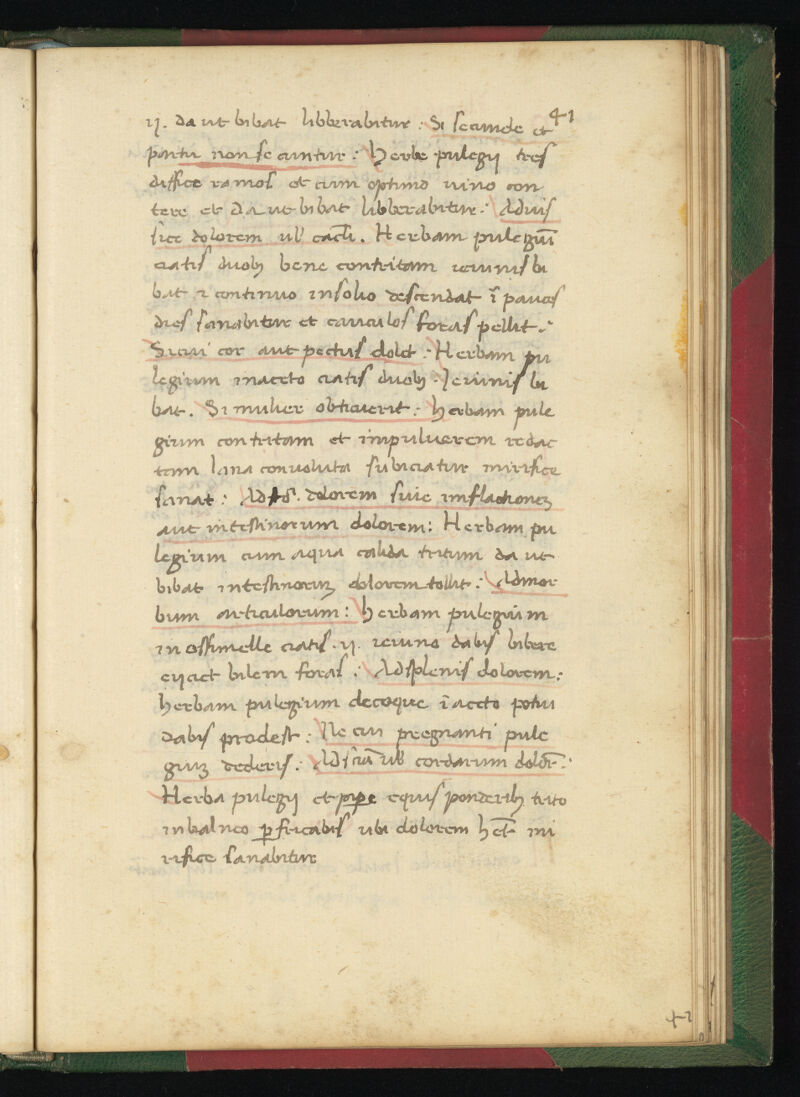 41
ij. da ut bibat libberabitur : Si secunde et
partu non se cuntur : Herbe pulegij tres
diffice ramos et cum optimo uino con
tere et da ut bibat libberabitur : Ad uis
sice dolorem ul' cacl'i. Herbam pulegiū
ciatis duob; bene contritam ieiunis bi
bat et continuo in solio descendat ī paucos
dies sanabitur et cauculos foras pellit :
Si cui cor aut pectus dolet : Herbam pu
legium in aceto ciatis duob; Ieiunis bi
bat. Si mulier obticuerit : Herbam pule
gium contritam et impuluerem redac
tam lana conuoluta subiciatur mirifice
sanat : Ad dolorem siue imflationez
aut intestinorum dolorem : Herbam pu
legium cum aqua calida tritum da ut
bibat intestinoruz dolorem tollit : Ad mor
bum articulorum : Herbam pulegium
in ossimelle ciatis .ij. ieiuno dabis bibere
eijciet bilem foras : Ad splenis dolorem :
herbam pulegium decoque ī aceto potui
dabis prodest : Ne cui pregnanti pule
giuz dederis : Ad ul' cordarum dolor̄ :
Herba pulegij et pipe equis ponderib; trito
in balneo ꝑfricabis ubi dolorem het̄ mi
rifice sanabitur
42